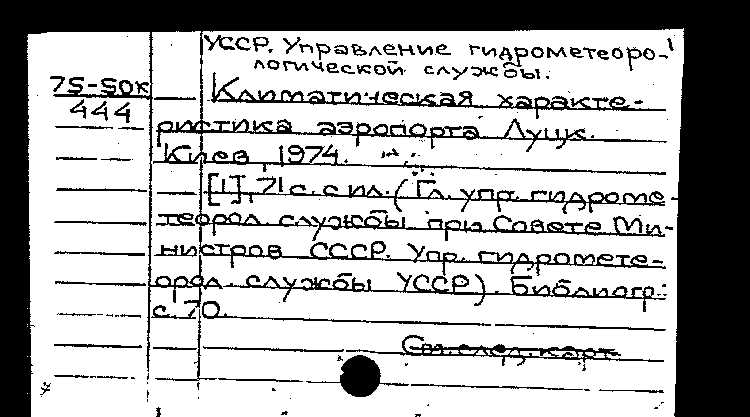 УССР. Управление гидрометеоро-
логической службы.
75-50к
444
Климатическая характе-
ристика аэропорта Луцк.
Киев, 1974.
[1], 71 с. с ил. (Гл. упр. гидроме-
теорол. службы при Совете Ми-
нистров СССР. Упр. гидромете-
орол. службы УССР). Библиогр.:
с. 70.
См. след. карт.